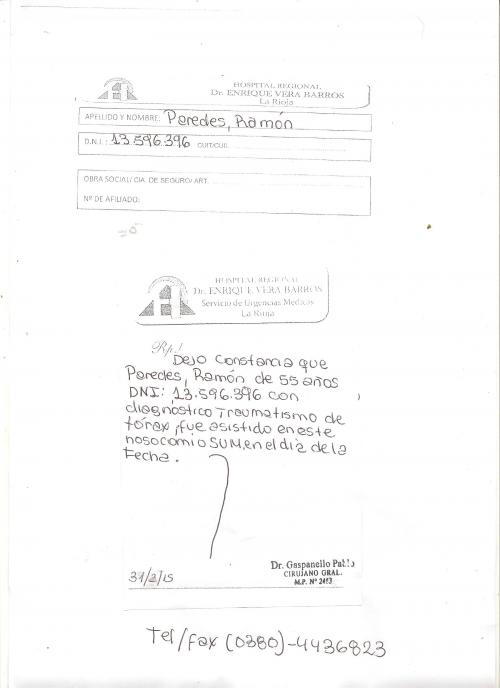 HOSPITAL REGIONAL
Dr. ENRIQUE VERA BARROS
La Rioja
APELLIDO Y NOMBRE: Paredes, Ramón
D.N.I.: 13.596.396 CUIT/CUIL
OBRA SOCIAL/ CIA. DE SEGURO/ ART.
Nº DE AFILIADO:
HOSPITAL REGIONAL
Dr. ENRIQUE VERA BARROS
Servicio de Urgencias Medicas
La Rioja
Rp./
Dejo Constancia que
Paredes, Ramón de 55 años
DNI: 13.596.396 con
diagnóstico Traumatismo de
tórax, fue asistido en este
nosocomio SUM, en el día de la
Fecha.
Dr. Gaspanello Pablo
31/2/15
CIRUJANO GRAL.
M.P. Nº 2413
Tel/fax (0380)-4436823